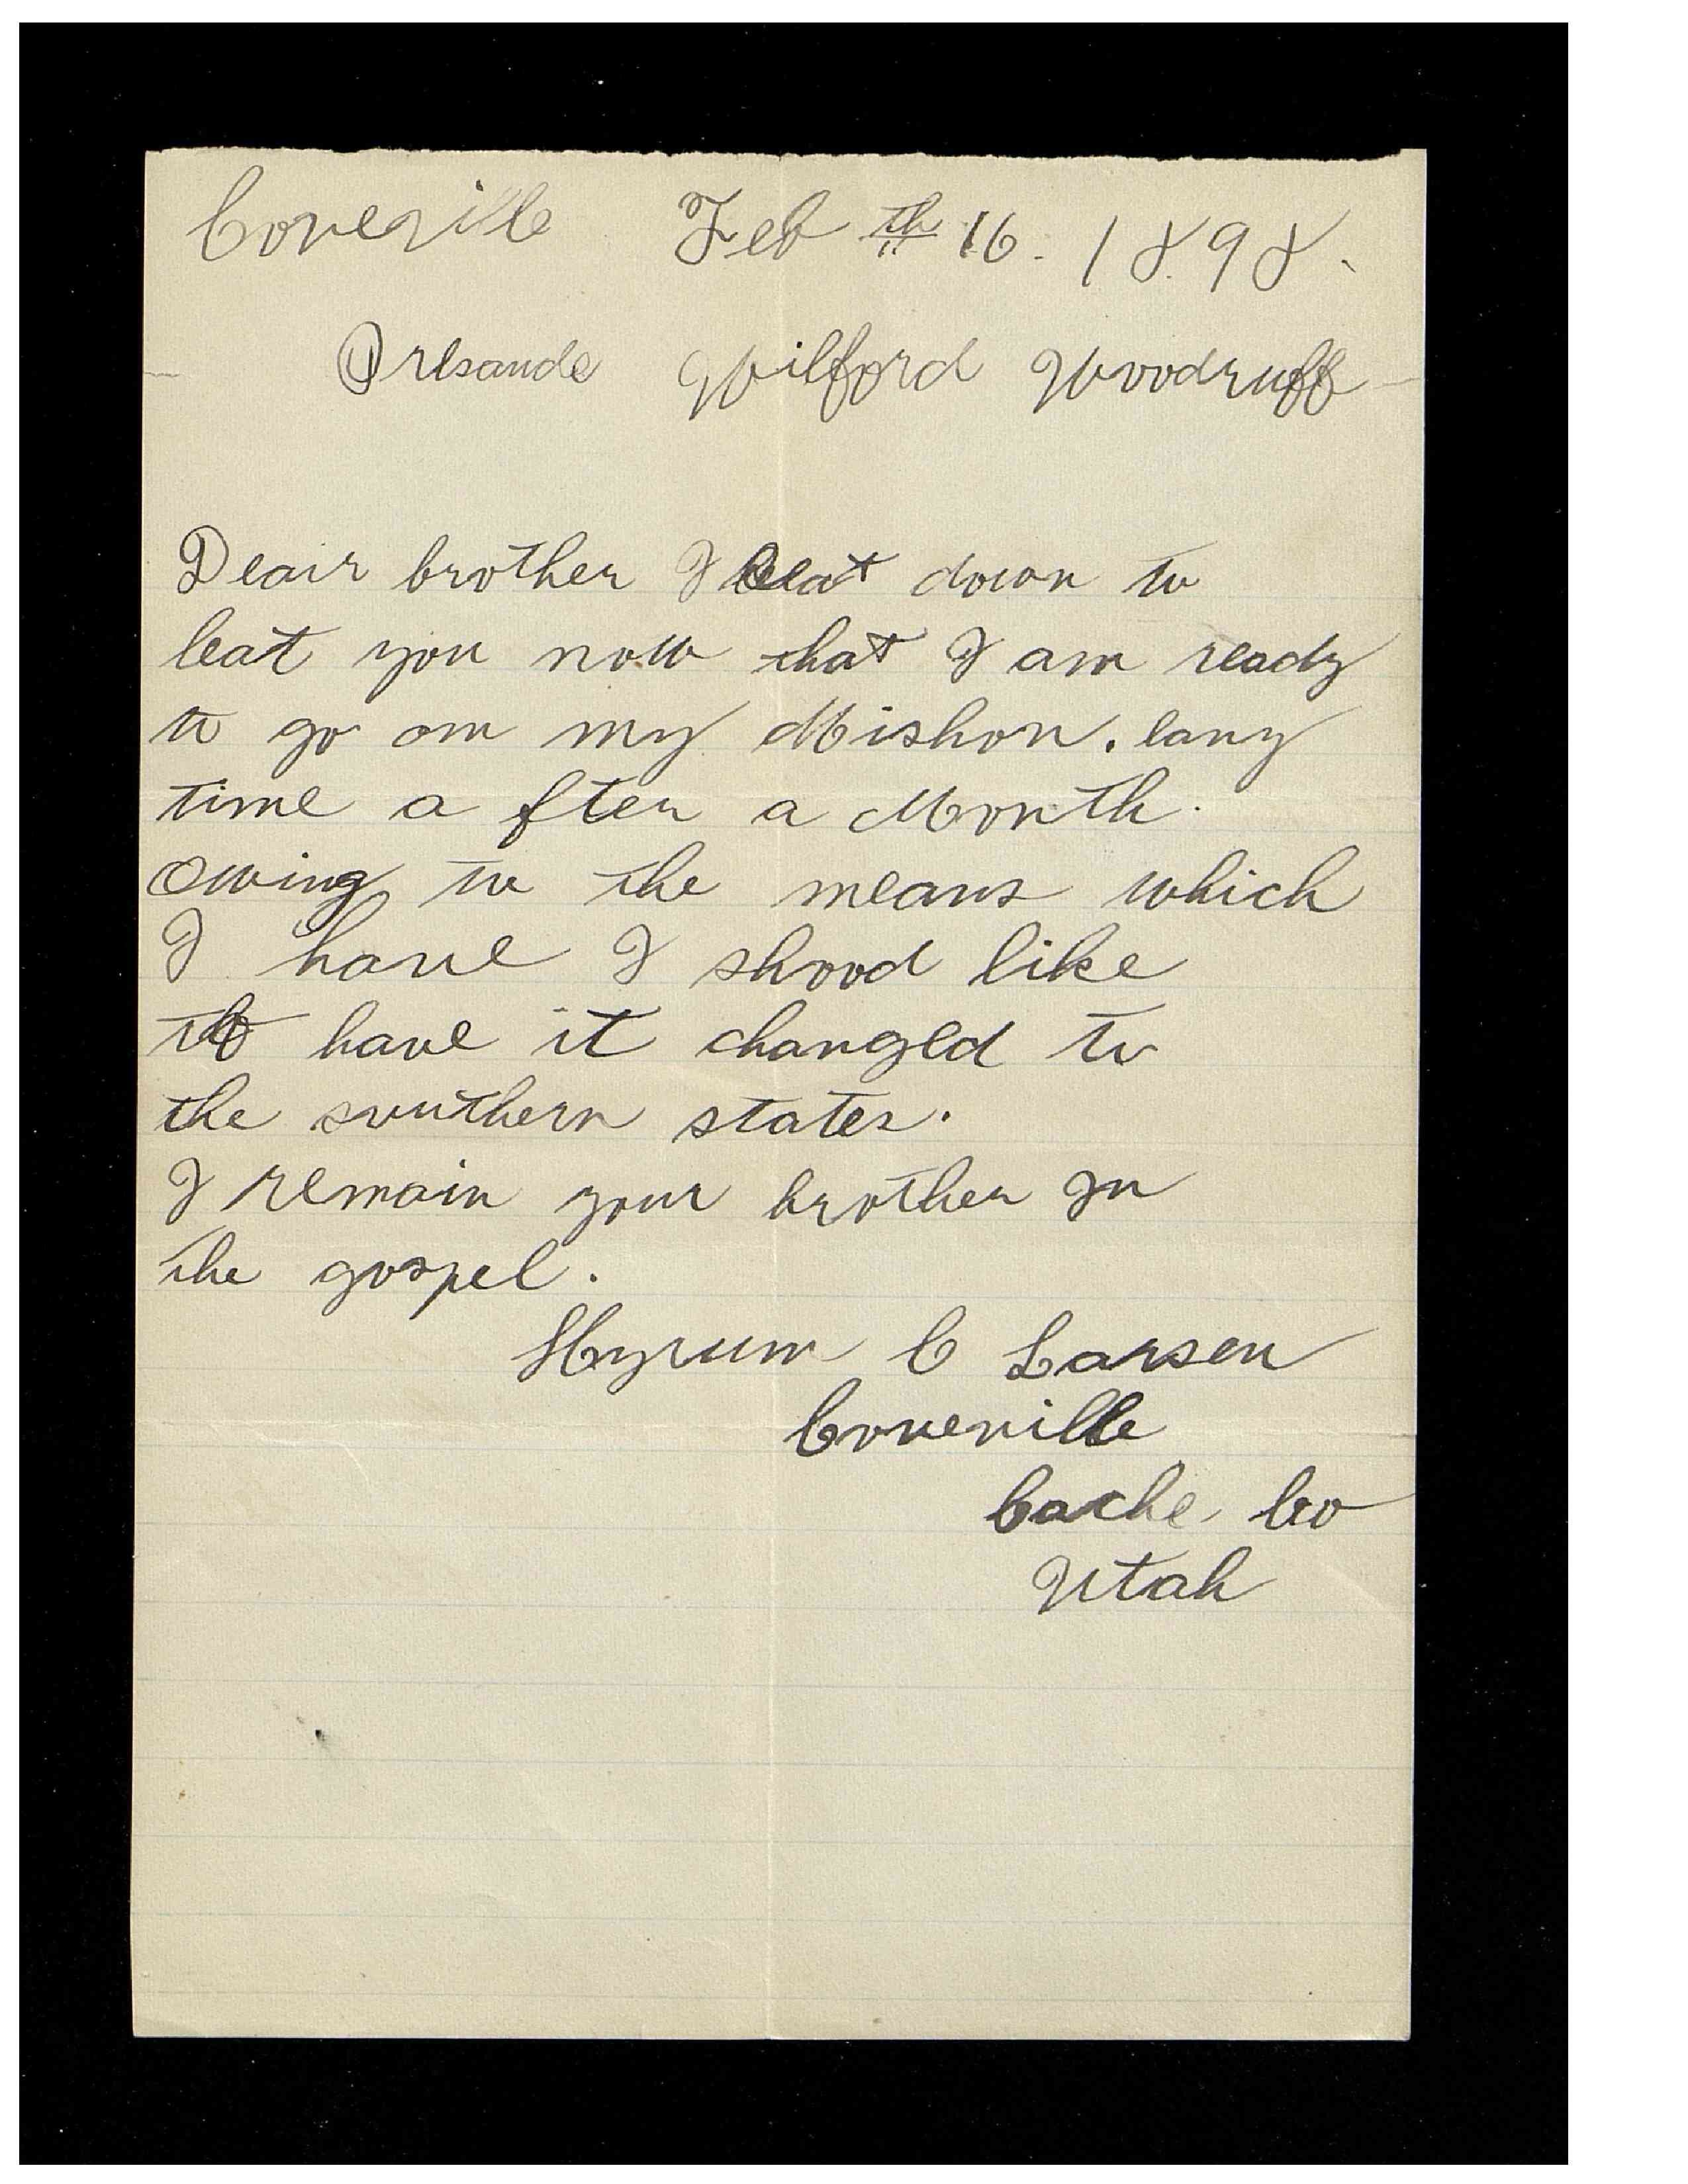 Coveville Feb th 16. 1898.
Presande Wilford Woodruff
Deair brother I seat down to
leat you now that I am ready
to go on my Mishon. eany
time a fter a Month.
Owing to the means which
I have I shood like
to have it changed to
the southern states.
I remain your brother In
the gospel.
Hyrum C Larsen
Coveville
Cache Co
Utah